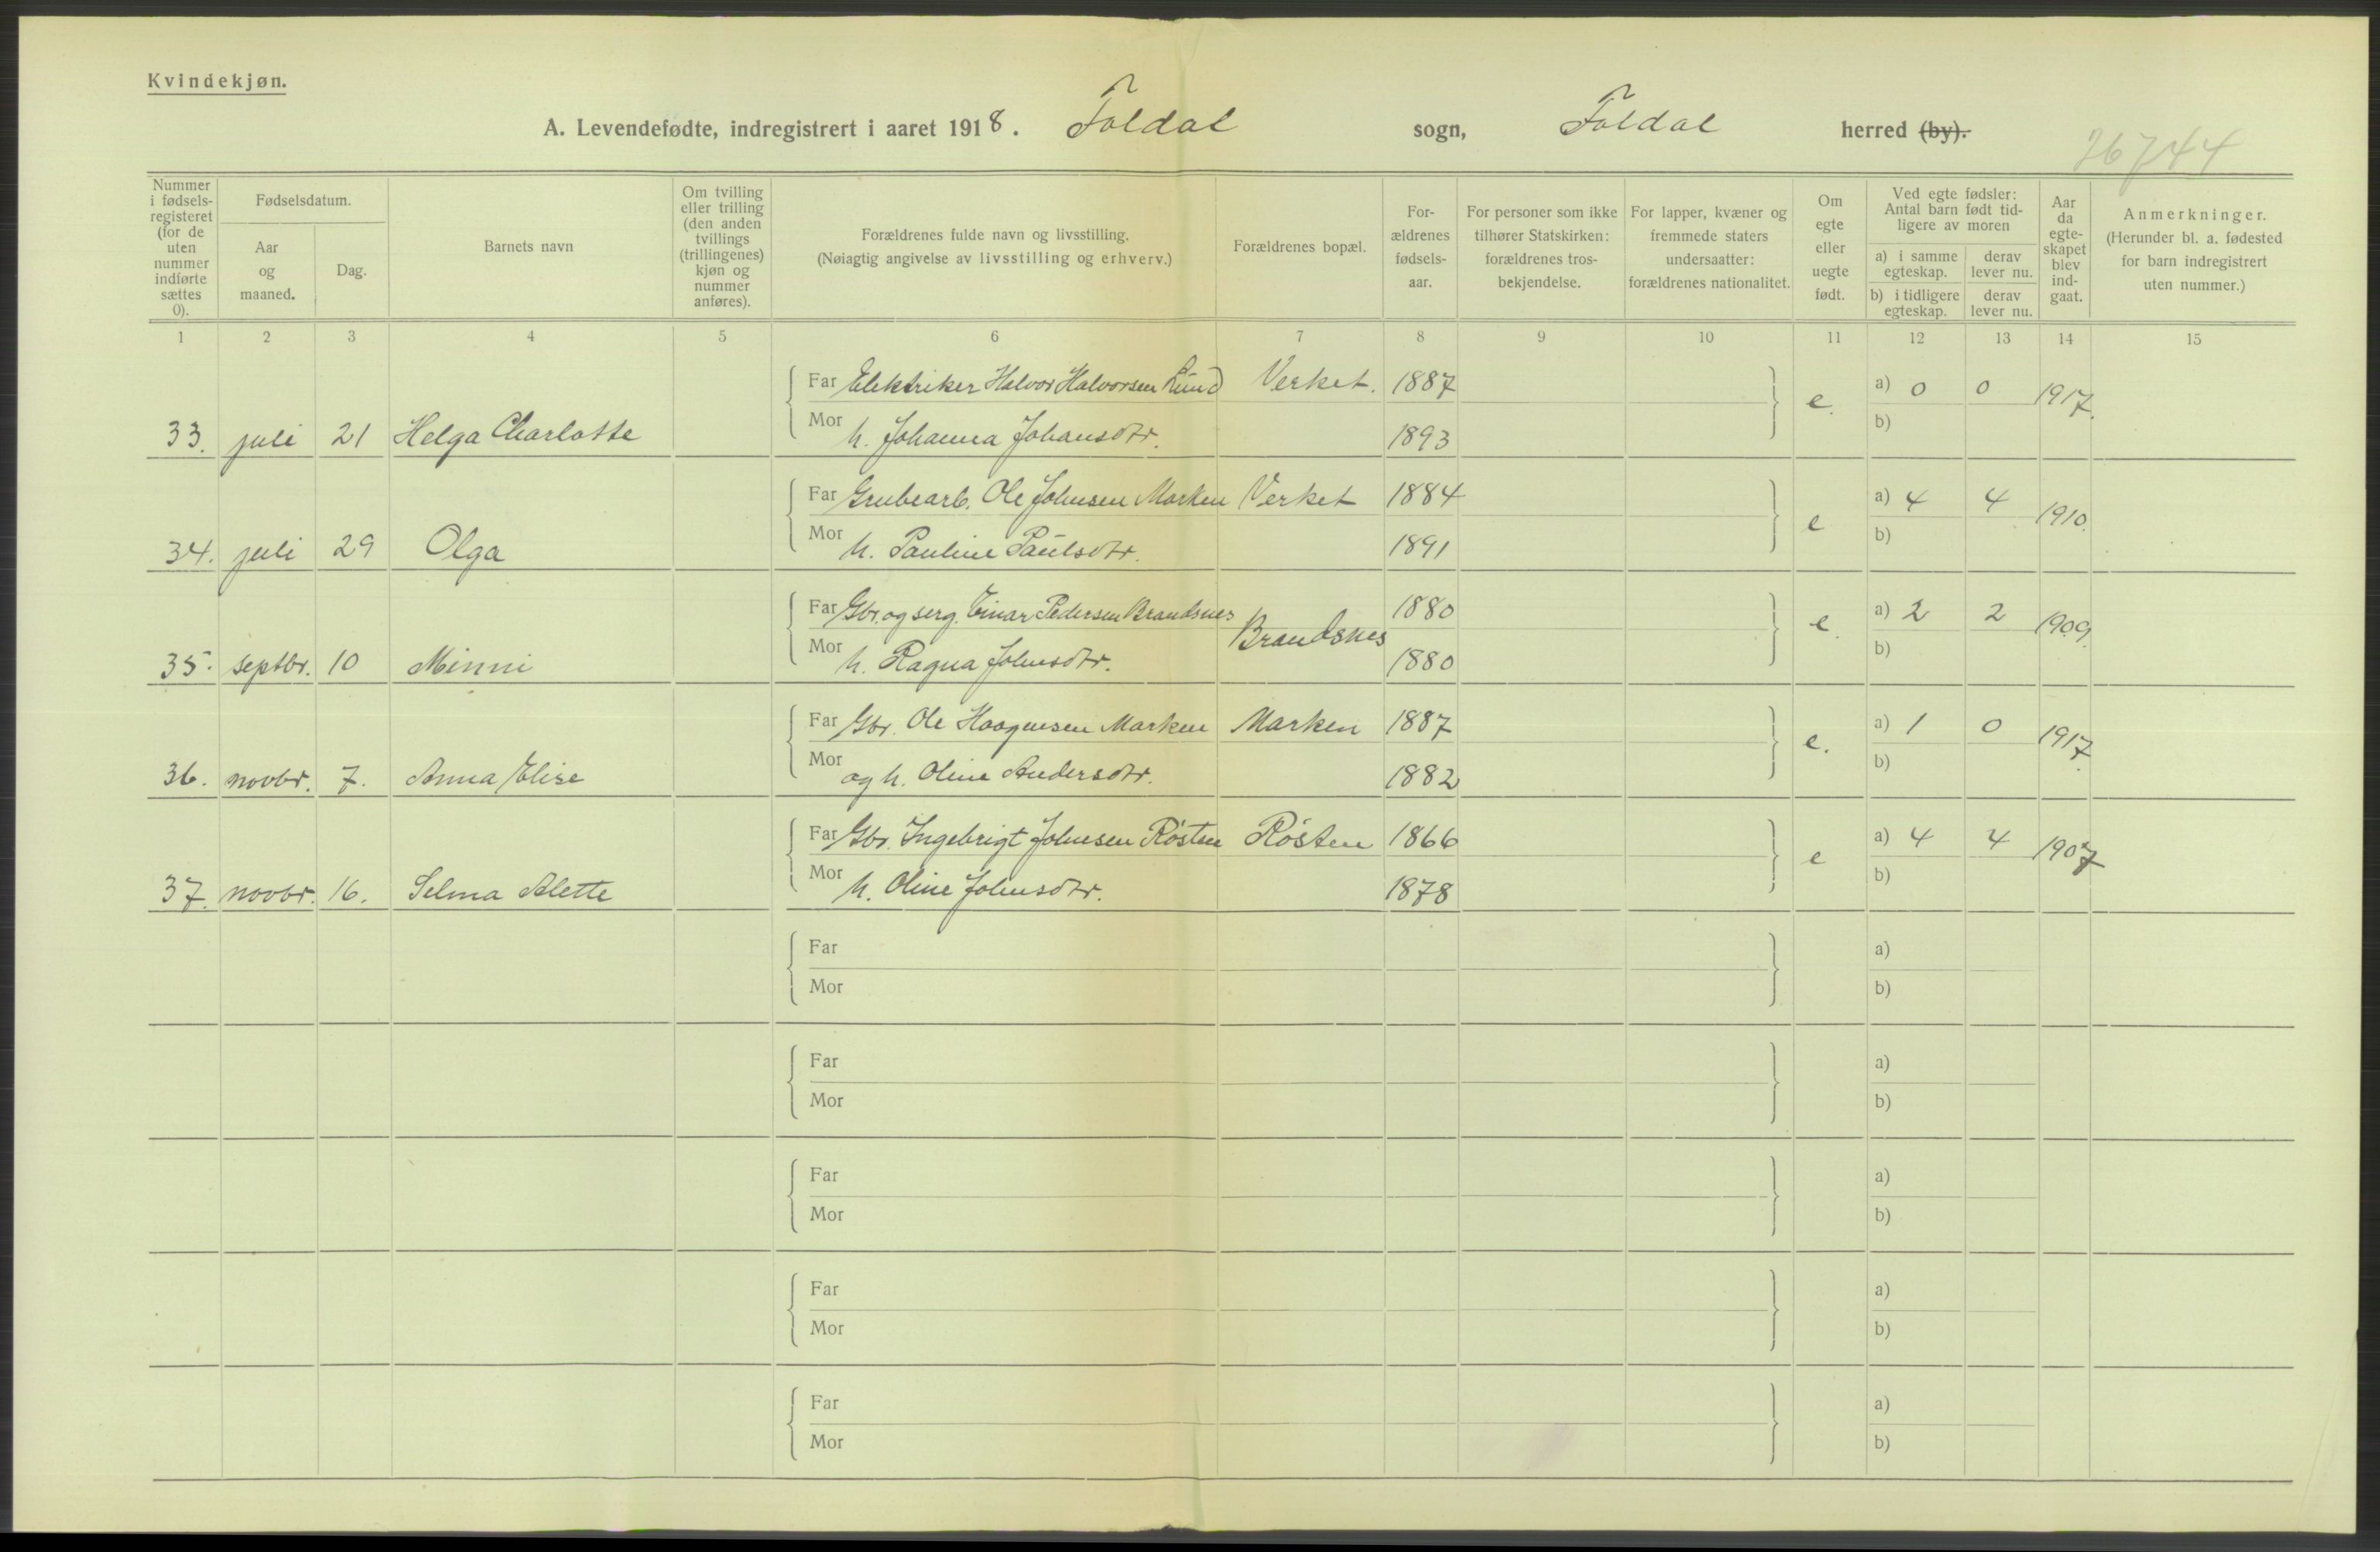 Kvindekjøn.
A. Levendefødte, indregistrert i aaret 1918. Foldal sogn, Foldal herred (by).
26744
Nummer i fødsels-registeret (for de uten nummer indførte sættes 0).
Fødselsdatum.
Aar og maaned.
Dag.
Barnets navn
Om tvilling eller trilling (den anden tvillings (trillingenes) kjøn og nummer anføres).
Forældrenes fulde navn og livsstilling.
(Nøiagtig angivelse av livsstilling og erhverv.)
Forældrenes bopæl.
For-ældrenes fødsels-aar.
For personer som ikke tilhører Statskirken: forældrenes tros-bekjendelse.
For lapper, kvæner og fremmede staters undersaatter: forældrenes nationalitet.
Om egte eller uegte født.
Ved egte fødsler: Antal barn født tid-ligere av moren
a) i samme egteskap.
derav lever nu.
b) i tidligere egteskap.
derav lever nu.
Aar da egte-skapet blev ind-gaat.
Anmerkninger.
(Herunder bl. a. fødested for barn indregistrert uten nummer.)
1 2 3 4 5 6 7 8 9 10 11 12 13 14 15
Far Elektriker Halvor Halvorsen Lund Verket. 1887 a) 0 0 1917.
33. juli 21 Helga Charlotte Mor h. Johanna Johansdtr. 1893 e. b)
Far Grubearb. Ole Johnsen Morken Verket 1884 a) 4 4 1910.
34. juli 29 Olga Mor h. Pauline Paulsdtr. 1891 e b)
Far Gbr. og serg. Einar Pedersen Brandsnes Brandsnes 1880 a) 2 2 1909.
35. septbr. 10 Minni Mor h. Ragna Johnsdtr. 1880 e. b)
Far Gbr. Ole Haagensen Marken Marken 1887 a) 1 0 1917.
36. novbr. 7. Anna Elise Mor og h. Oline Andersdtr. 1882 e. b)
Far Gbr. Ingebrigt Johnsen Røsten Røsten 1866 a) 4 4 1907
37. novbr. 16. Selma Alette Mor h. Oline Johnsdtr. 1878 e b)
Far a)
Mor b)
Far a)
Mor b)
Far a)
Mor b)
Far a)
Mor b)
Far a)
Mor b)